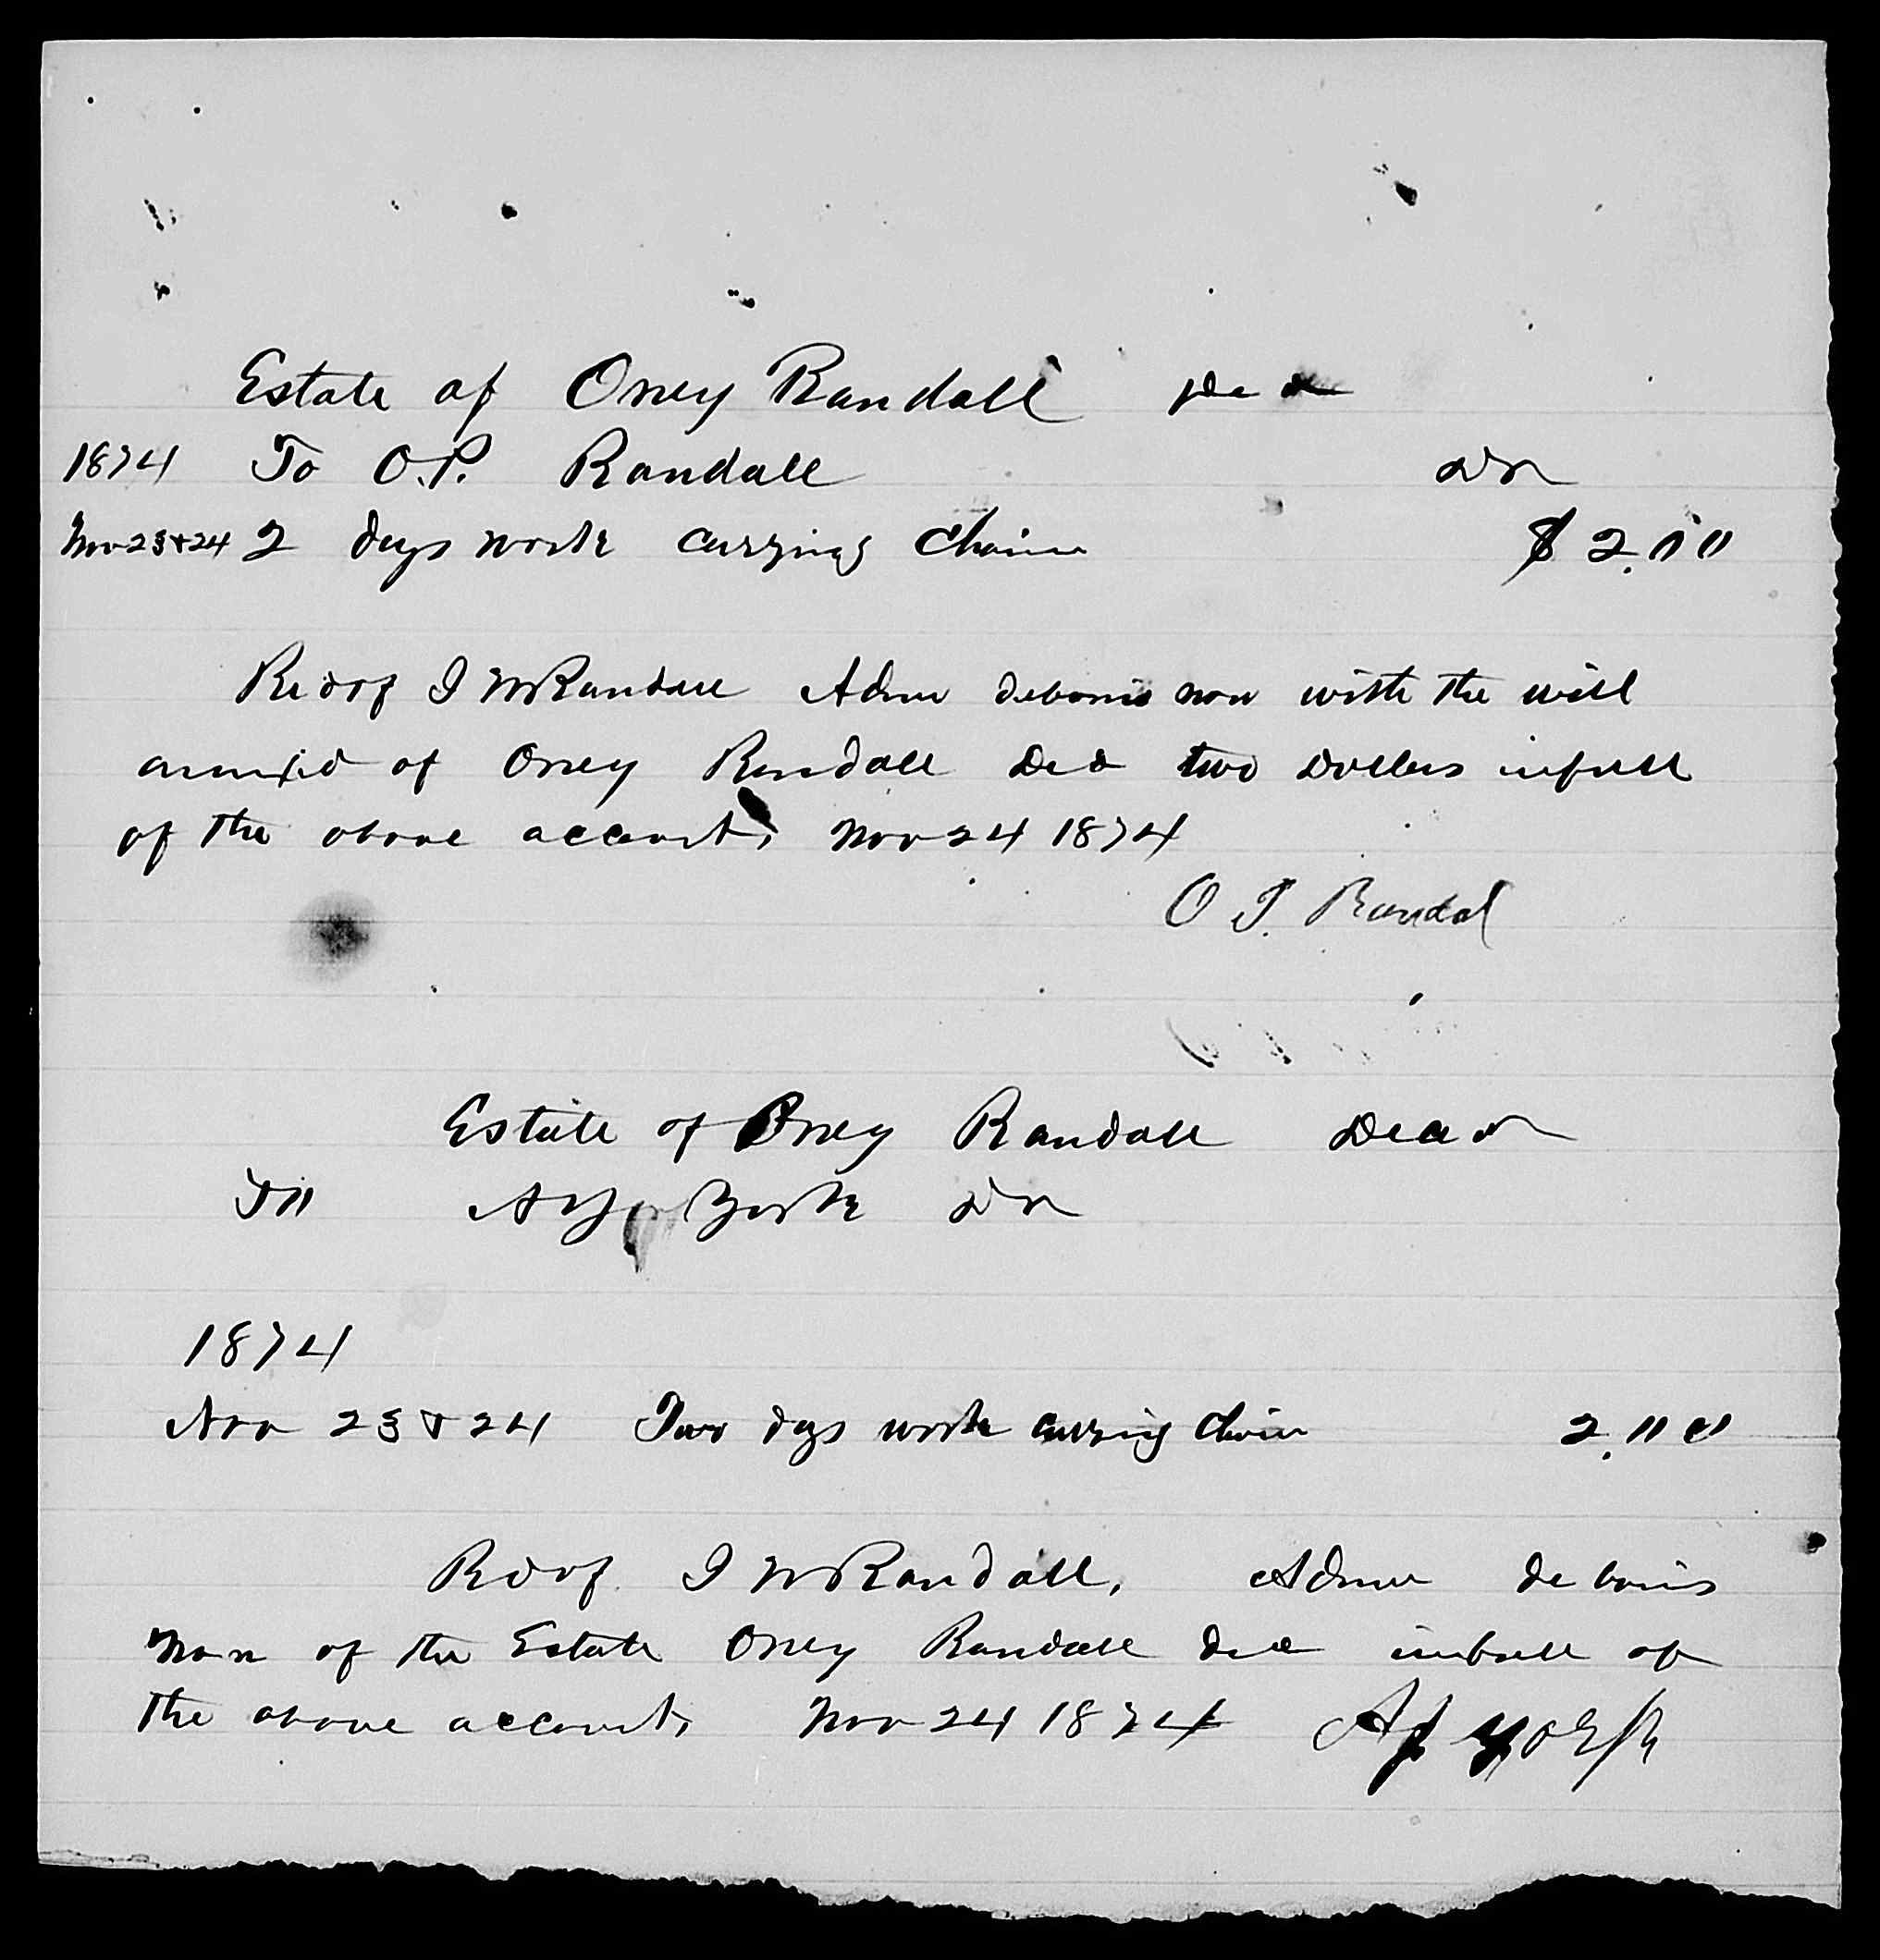 Estate of Oney Randall Decd
1874 To O.P. Randall Dr
Nov 23 & 24 2 days work carrying chain $ 2.00
Recd of I W Randall Admr debonis non with the will
annexed of Oney Randall Decd two Dollars in full
of the above account, Nov 24 1874
O P. Randal
Estate of Oney Randall Decd
To A York Dr
1874
Nov 23 & 24 Two days work carrying chain 2.00
Recd of I W Randall, Admr de bonis
non of the Estate Oney Randall decd in full of
the above account, Nov 24 1874 A J York